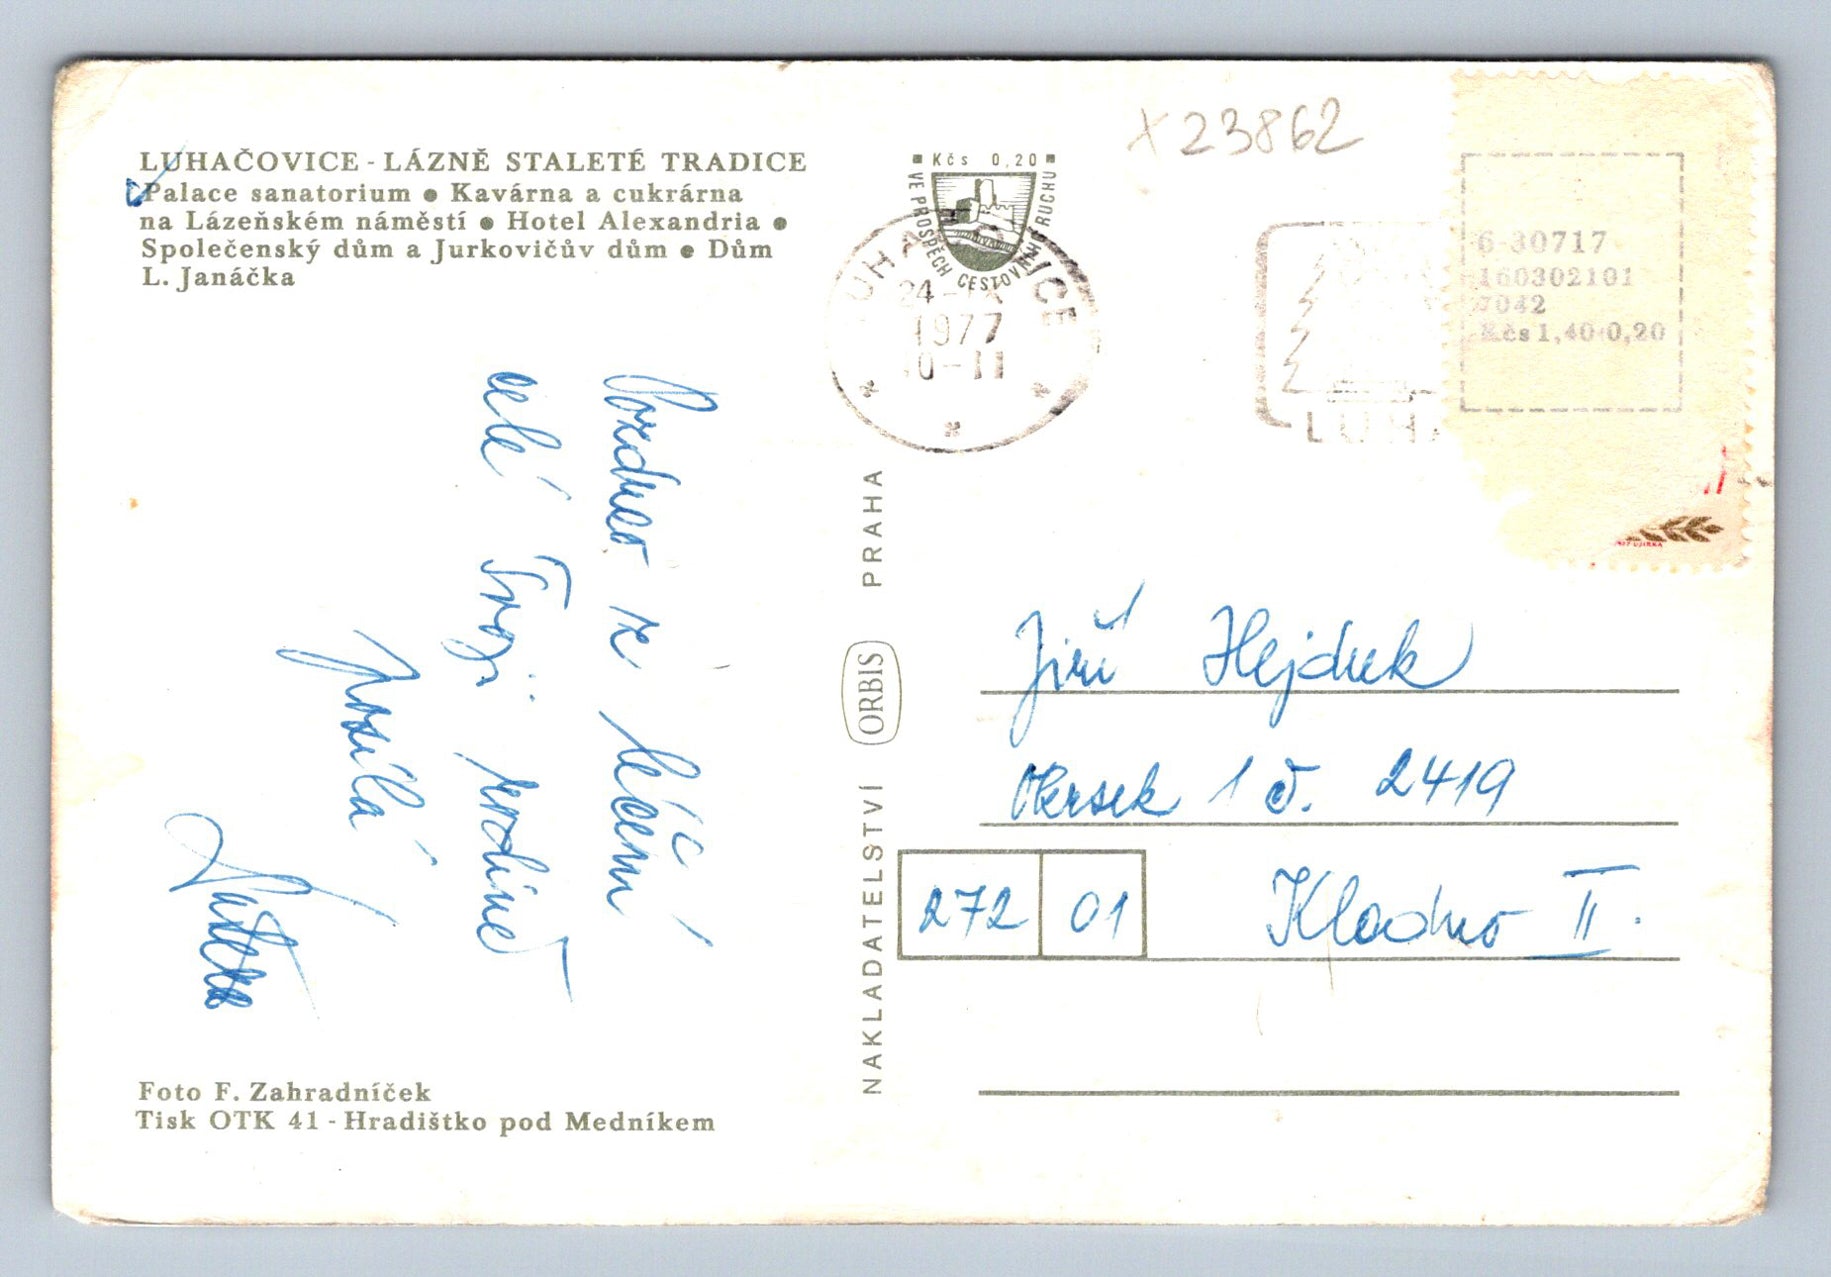 LUHAČOVICE - LÁZNĚ STALETÉ TRADICE
Palace sanatorium ● Kavárna a cukrárna
na Lázeňském náměstí ● Hotel Alexandria ●
Společenský dům a Jurkovičův dům ● Dům
L. Janáčka
Pozdrav z léčení
celé Tvoji rodině
posílá
Foto F. Zahradníček
Tisk OTK 41 - Hradištko pod Medníkem
NAKLADATELSTVÍ ORBIS PRAHA
Kčs 0,20
VE PROSPĚCH CESTOVNÍH RUCHU
24-IX
1977
10-11
X 23862
LUHA
6-30717
160302101
7042
Kčs 1,40+0,20
Jiří Hejduk
Okrsek 1 č. 2419
272 01 Kladno II.